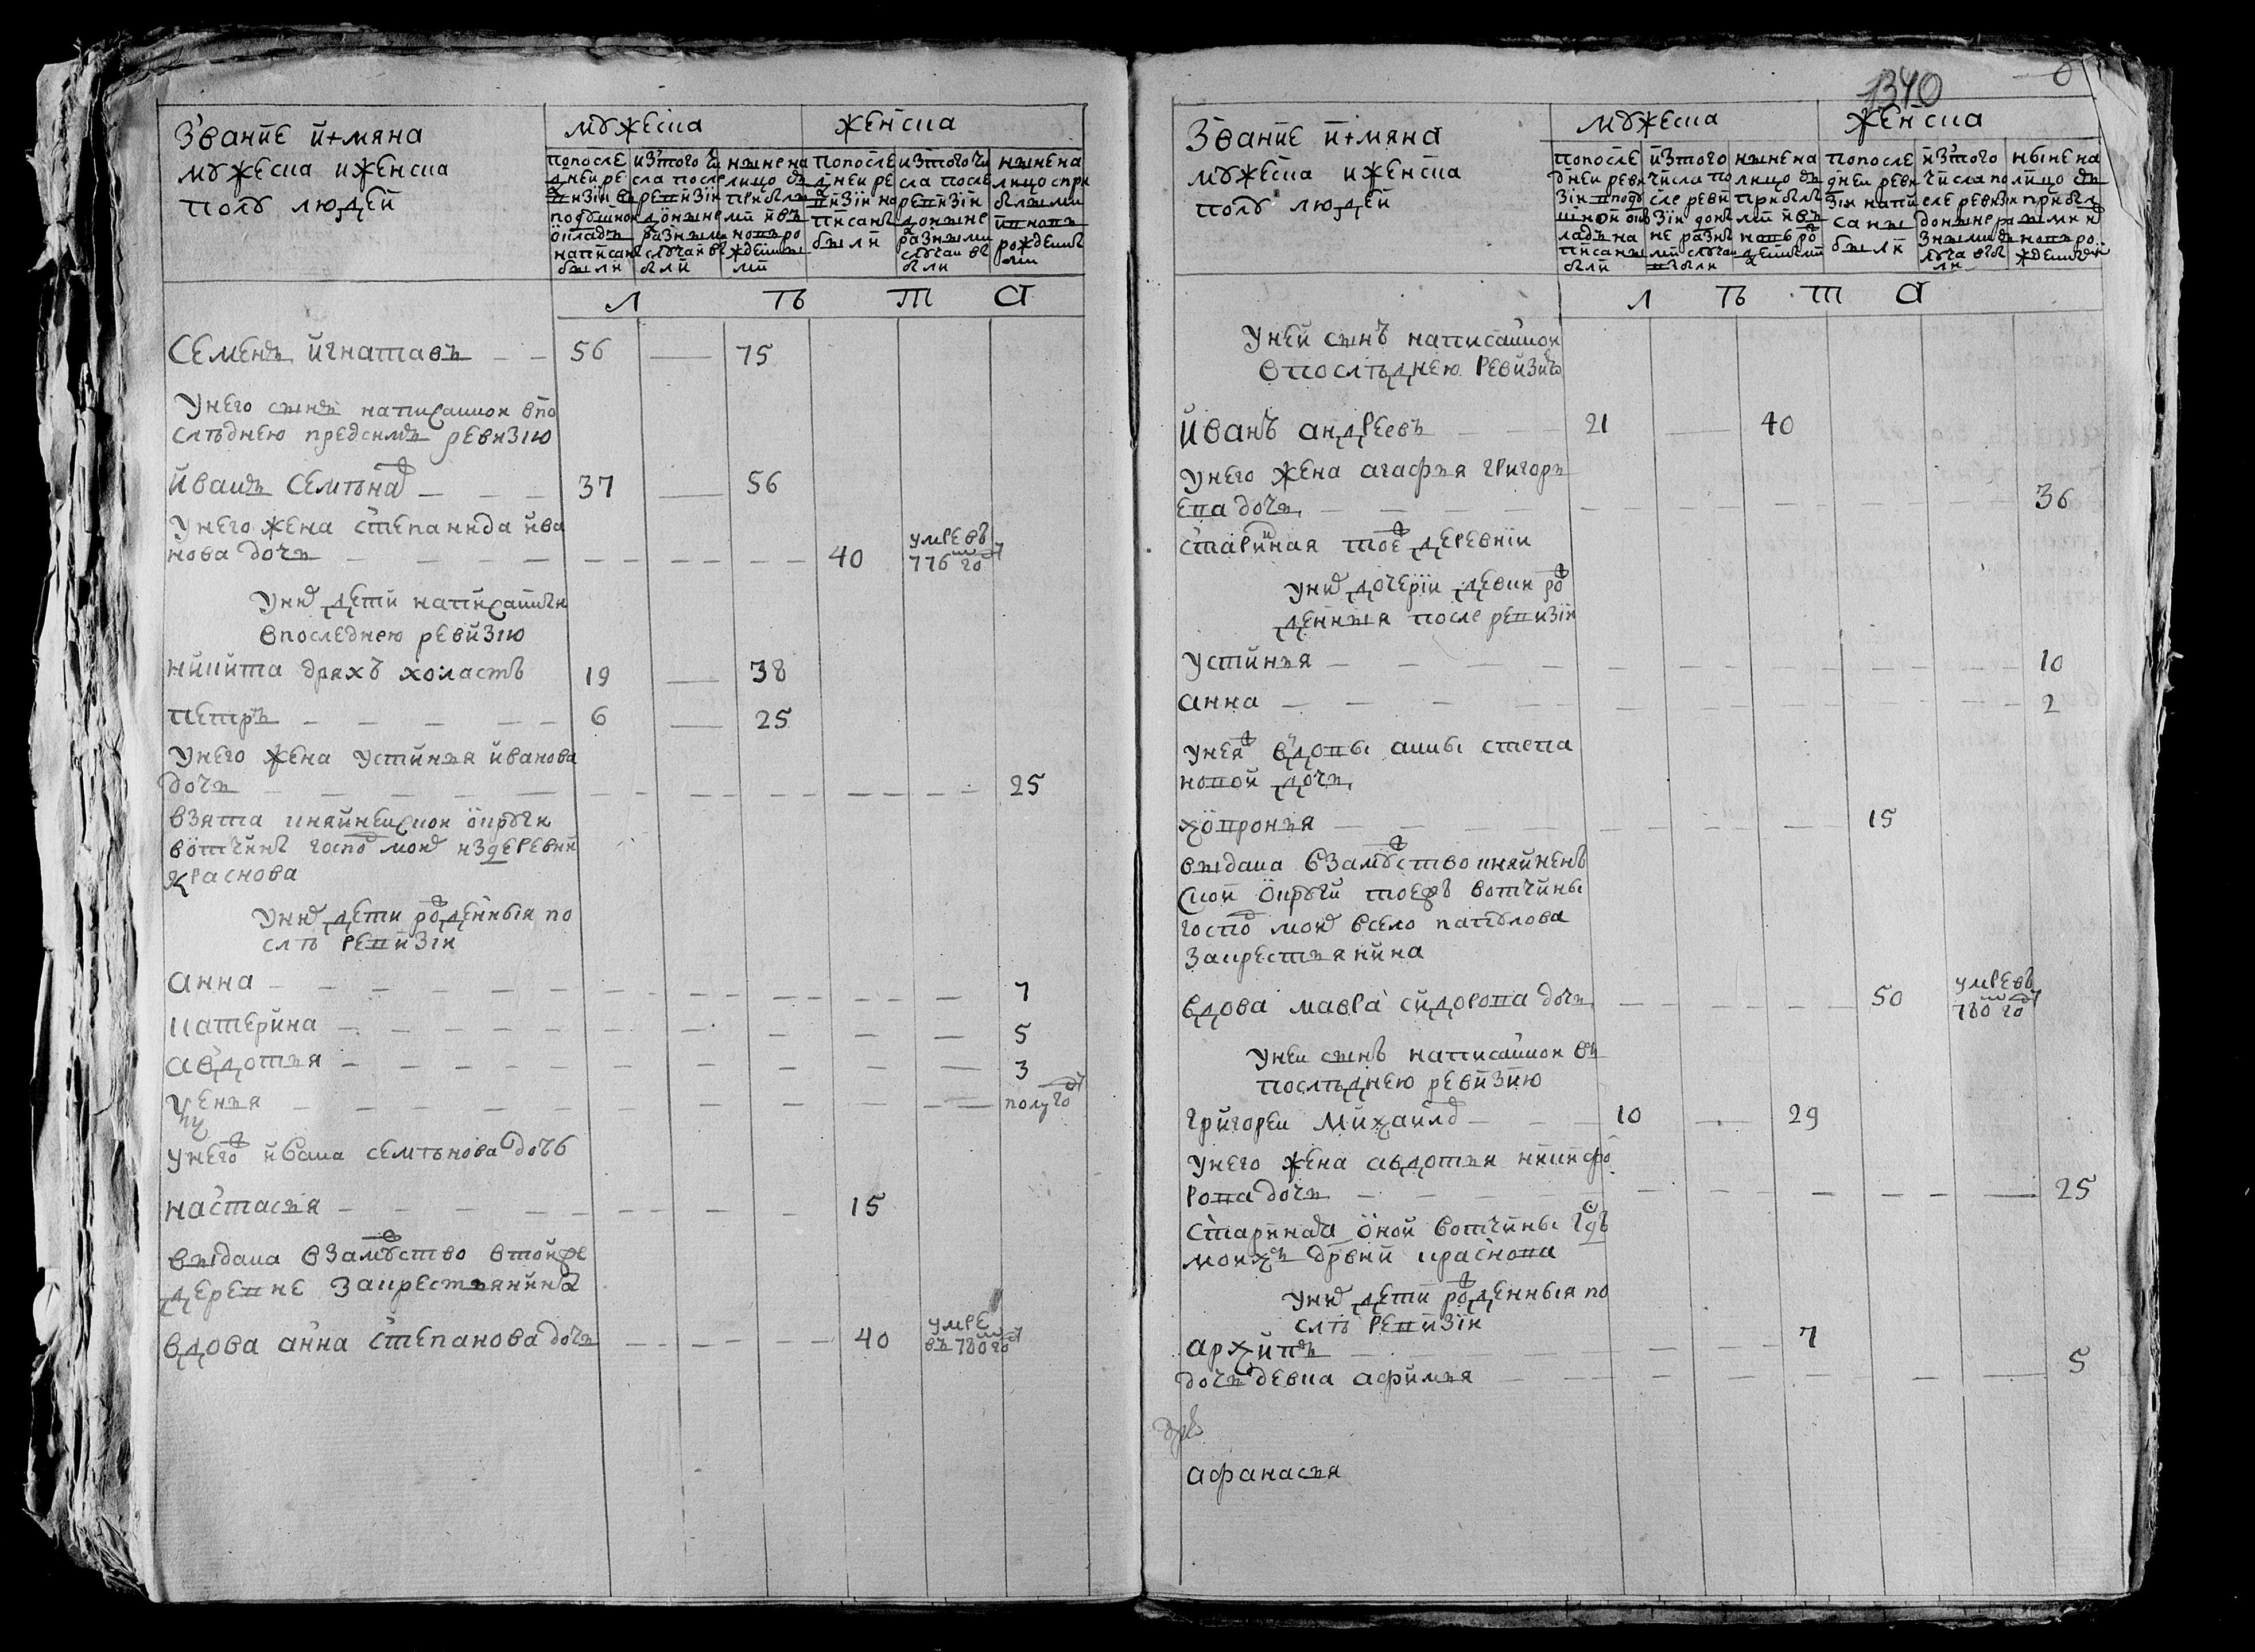 Звание и имяна
мужеска и женска
полу людей
мужеска
женска
попосле
дней ре
визїи въ
подушной
окладъ
написаны
были
изтого чи
сла после
ревизїи
доныне
разными
случаи вы
были
ныне на
лицо съ
прибылы
ми и въ
новь ро
жденны
ми
попосле
дней ре
визїи на
писаны
были
изтого чи
сла после
ревизїи
доныне
разными
случаи вы
были
ныне на
лицо спри
былыми
и вновь
рожденны
ми
Л Ѣ Т А
Семенъ Игнатавъ 56 — 75
Унего сынъ написанной впо
слѣднею предсимъ ревизїю
Иванъ Семѣнов 37 — 56
Унего жена Степанида Ива
нова дочь 40 умре въ
776м году
Уних дети написанныи
впоследнею ревизїю
Никита дряхъ холастъ 19 — 38
Петръ 6 — 25
Унего жена Устинья Иванова
дочь 25
взята
вотчины госпо моих издеревни
Краснова
Уних дети рожденныя по
слѣ ревизїи
Анна 7
Катерина 5
Авдотья 3
полугод
Унего Ивана Семѣнова дочь
Настасья 15
выдана взамужство втойже
деревне закрестьянина
вдова Анна Степанова дочь 40 умре
въ 780м году
1340
Звание и имяна
мужеска и женска
полу людей
мужеска
женска
попосле
дней реви
зїи вподу
шной ок
ладъ на
писаны
были
изтого
числа по
сле реви
зїи доны
не разны
ми случаи
выбыли
ныне на
лицо съ
прибылы
ми и въ
новь ро
жденными
попосле
дней реви
зїи напи
саны
были
изтого
числа по
сле ревизїи
доныне ра
зными
случа выбы
ли
ныне на
лицо съ
прибыл
ыми и
новь ро
жденым
Л Ѣ Т А
Уней сынъ написанной
впослѣднею ревизию
Иванъ Андреевъ 21 — 40
Унего жена Агафья Григорь
ева дочь 36
старинная тоеж деревнїи
Уних дочерїи девки рож
денныя после ревизїи
Устинья 10
Анна 2
Унея вдовы Анны Степа
новой дочь
Ховронья 15
выдана взамужство княинен
ской округи тоежъ вотчины
госпо моих всело Павлова
закрестьянина
вдова Мавра Сидорова дочь 50 умре въ
780м году
Уней сынъ написанной въ
послѣднею ревизию
Григорей Михайлов 10 — 29
Унего жена Авдотья Никифо
рова дочь 25
старинная оной вотчины гдъ
моихъ дрвни Краснова
Уних дети рожденныя по
слѣ ревизїи
Архипъ 7
дочь девка Афимья 5
Афанасья